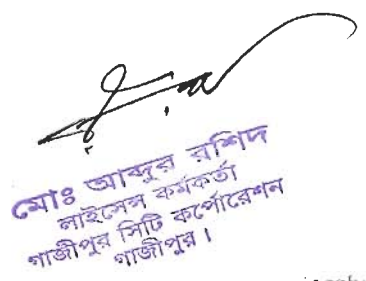 মোঃ আব্দুর রশিদ
লাইসেন্স কর্মকর্তা
গাজীপুর সিটি কর্পোরেশন
গাজীপুর।